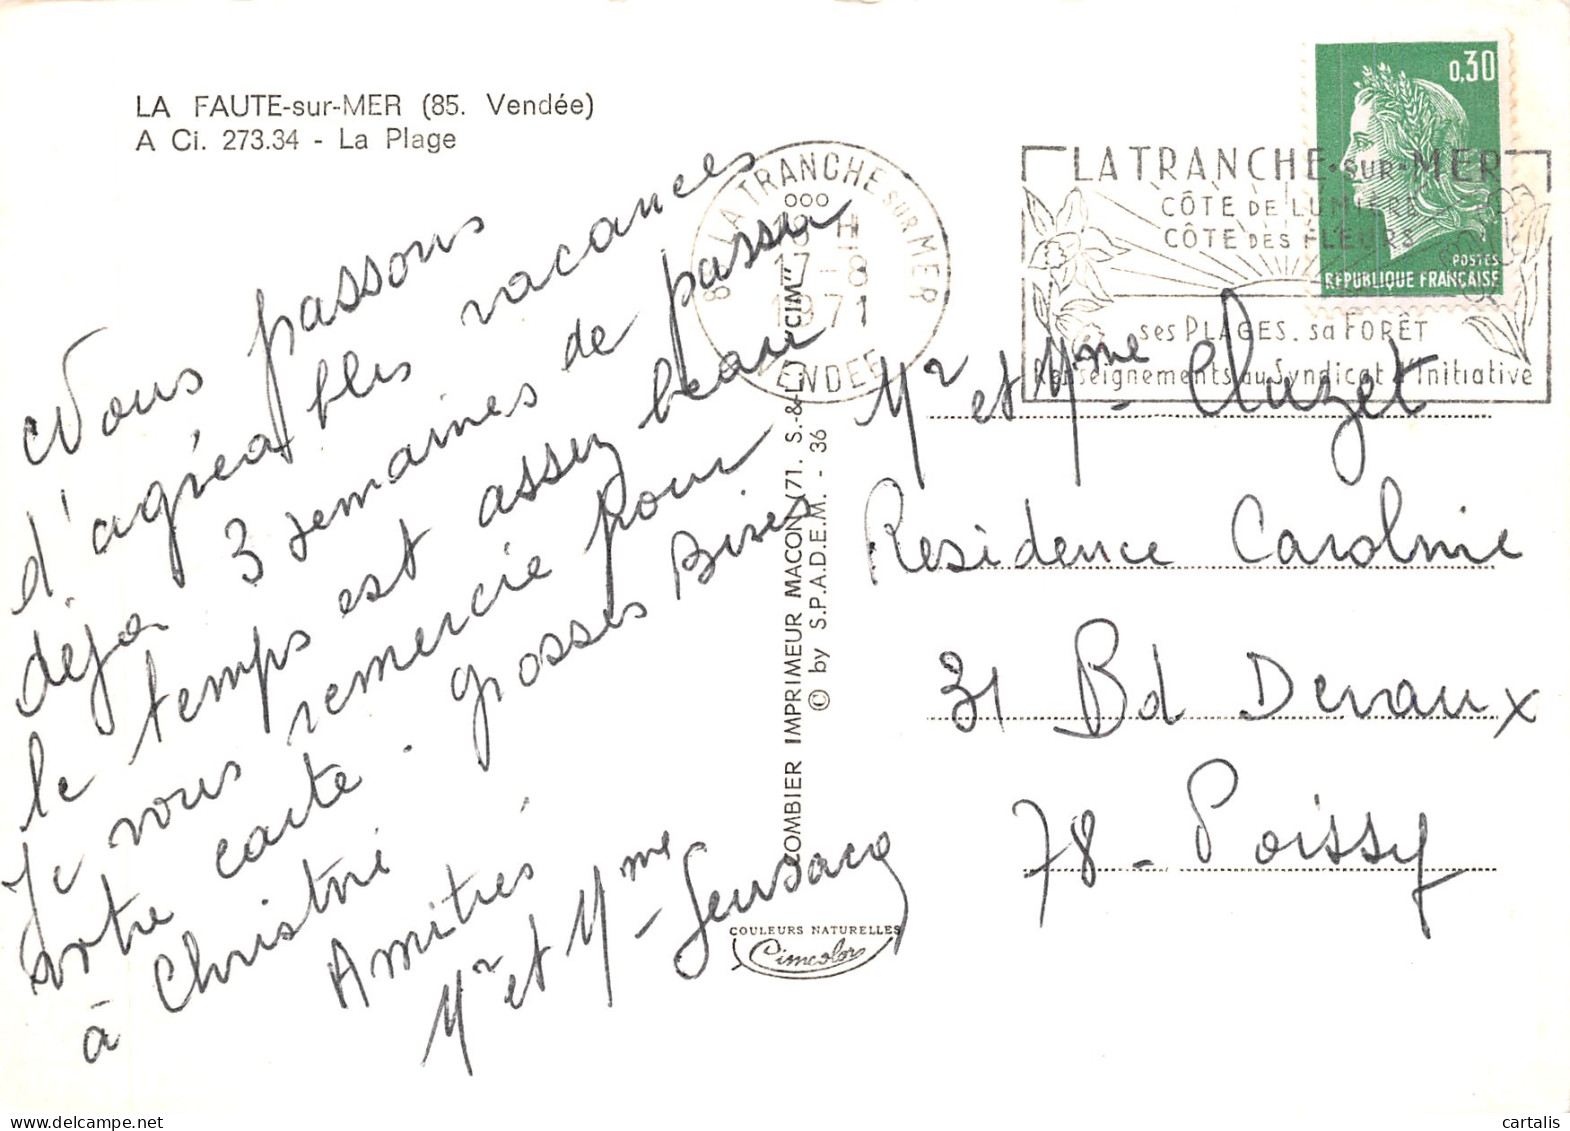 LA FAUTE-sur-MER (85. Vendée)
A Ci. 273.34 - La Plage
Nous passons
d'agréables vacances
déja 3 semaines de passer
le temps est assez beau
Je vous remercie pour
votre carte. grosses Bises
à Christine
Amitiés
Mr et Mme Gensacq
COMBIER IMPRIMEUR MACON (71. S.-&-L.) "CIM"
© by S.P.A.D.E.M. - 36
COULEURS NATURELLES
Cimcolor
85 LA TRANCHE SUR MER
18 H
17-8
1971
VENDEE
LA TRANCHE-SUR-MER
CÔTE DE LUMIÈRE
CÔTE DES FLEURS
ses PLAGES. sa FORÊT
Renseignements au Syndicat d'Initiative
0,30
POSTES
REPUBLIQUE FRANÇAISE
Mr et Mme Cluzet
Residence Caroline
31 Bd Devaux
78 - Poissy
cartalis